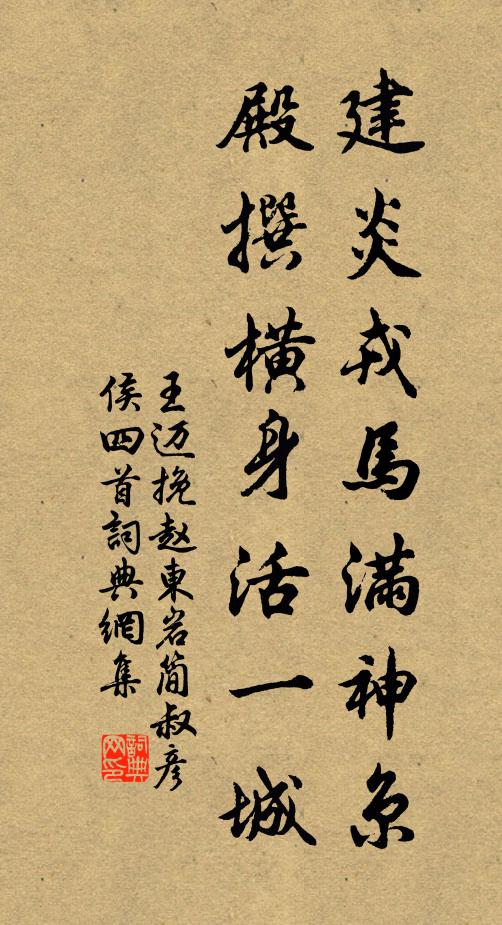 建炎戎馬滿神京
殿撰橫身活一城
王迈挽赵東岩簡叔彥
侯四首詞典網集
詞典網印